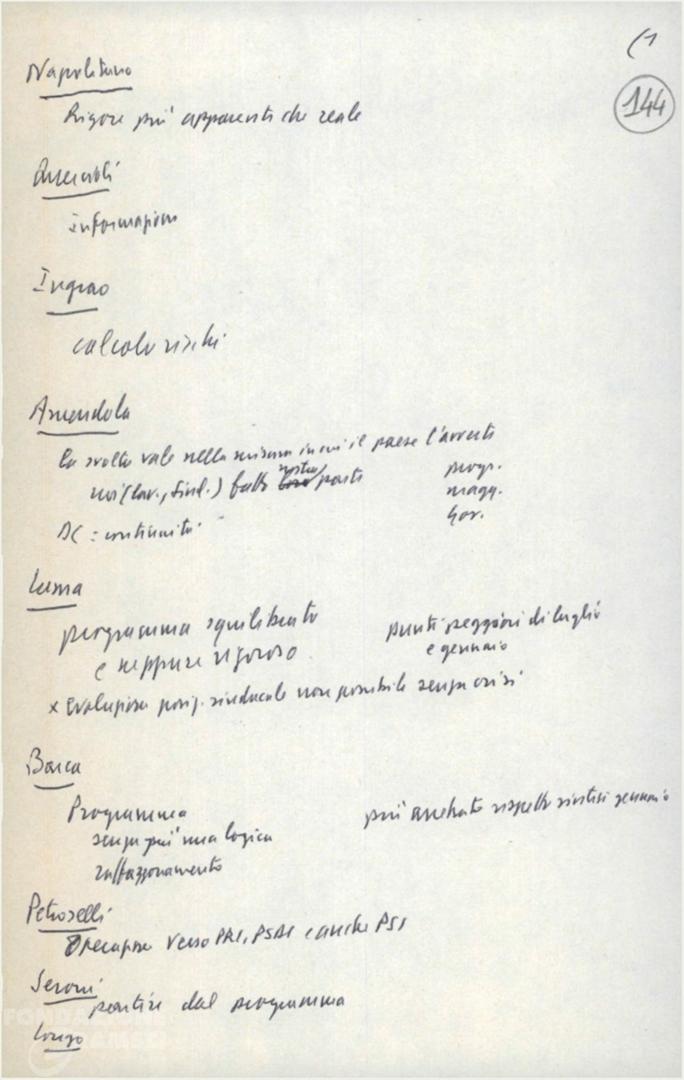 (1
144
Napolitano
Rigore più apparente che reale
informazioni
Ingrao
calcolo rischi
Amendola
la svolta vale nella misura in cui il paese l'avverte
noi (lav., sind.) fatto nostra parte
progr.
magg.
Gov.
DC = continuità
Lama
programma squilibrato
e neppure rigoroso
punti peggiori di luglio
e gennaio
x Evoluzione posiz. sindacale non possibile senza crisi
Barca
Programma
senza più una logica
raffazzonamento
più arretrato rispetto sintesi gennaio
Petroselli
Operazione verso PRI, PSDI e anche PSI
Seroni
partire dal programma
Longo
FONDAZIONE
GRAMSCI